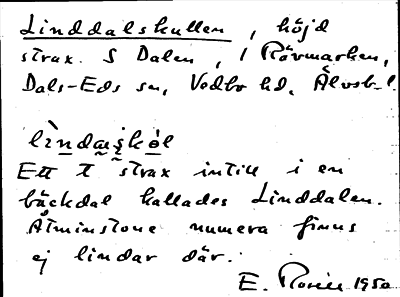 Linddalskullen, höjd
strax S Dalen, i Rävmarken,
Dals-Eds sn, Vedbo hd, Älvsb. l.
lìndaʃkòl
Ett t strax intill i en
bäckdal kallades Linddalen.
Åtminstone numera finns
ej lindar där.
E. Rosén 1950